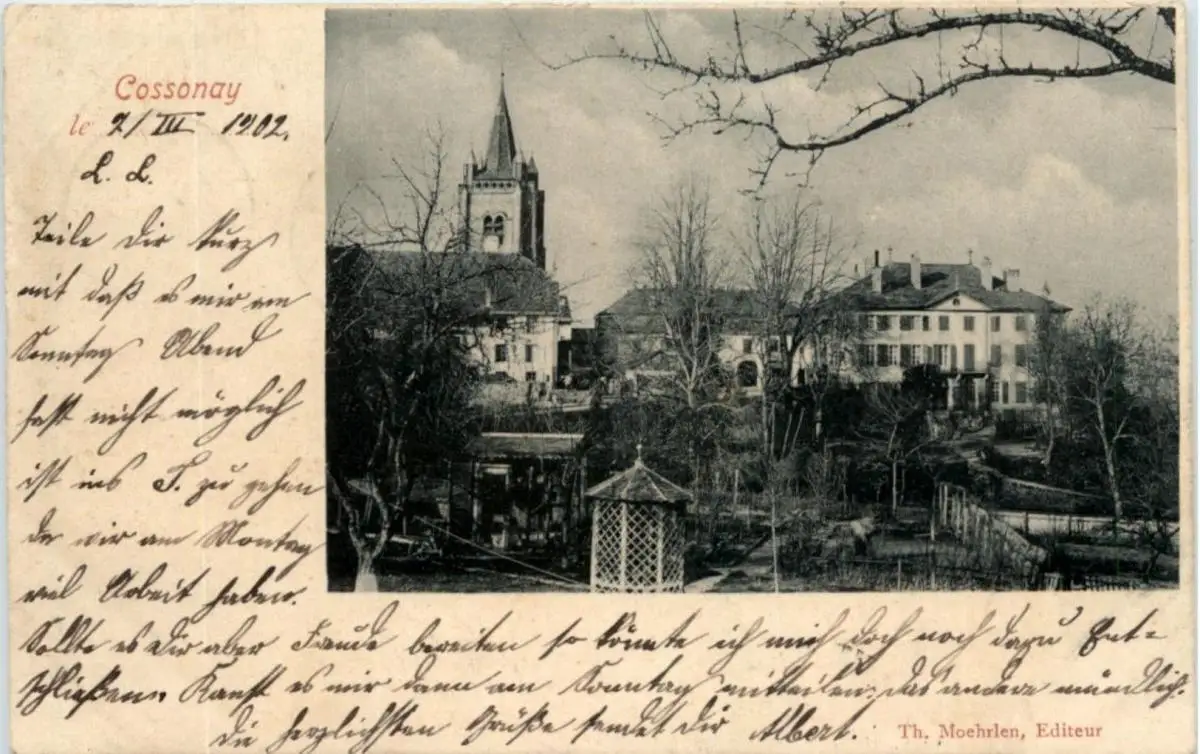 Cossonay
le 7/III 1902.
L. L.
Teile Dir kurz
mit daß es mir am
Sonntag Abend
fast nicht möglich
ist ins T. zu gehen
da wir am Montag
viel Arbeit haben.
Sollte es Dir aber Freude bereiten so könnte ich mich doch noch dazu Ent=
schließen. Kanst es mir dann am Sonntag mitteilen. Das andere mündlich.
Die herzlichsten Grüße sendet Dir Albert.
Th. Moehrlen, Editeur